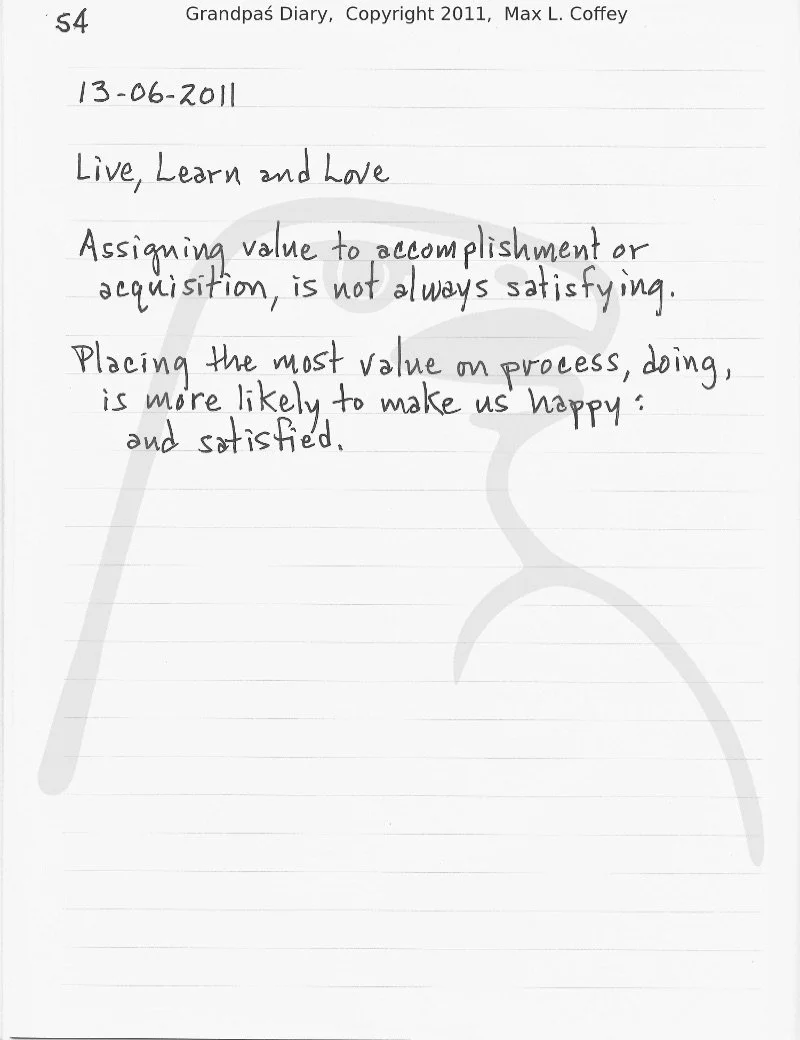 54
Grandpaś Diary, Copyright 2011, Max L. Coffey
13-06-2011
Live, Learn and Love
Assigning value to accomplishment or
acquisition, is not always satisfying.
Placing the most value on process, doing,
is more likely to make us happy:
and satisfied.